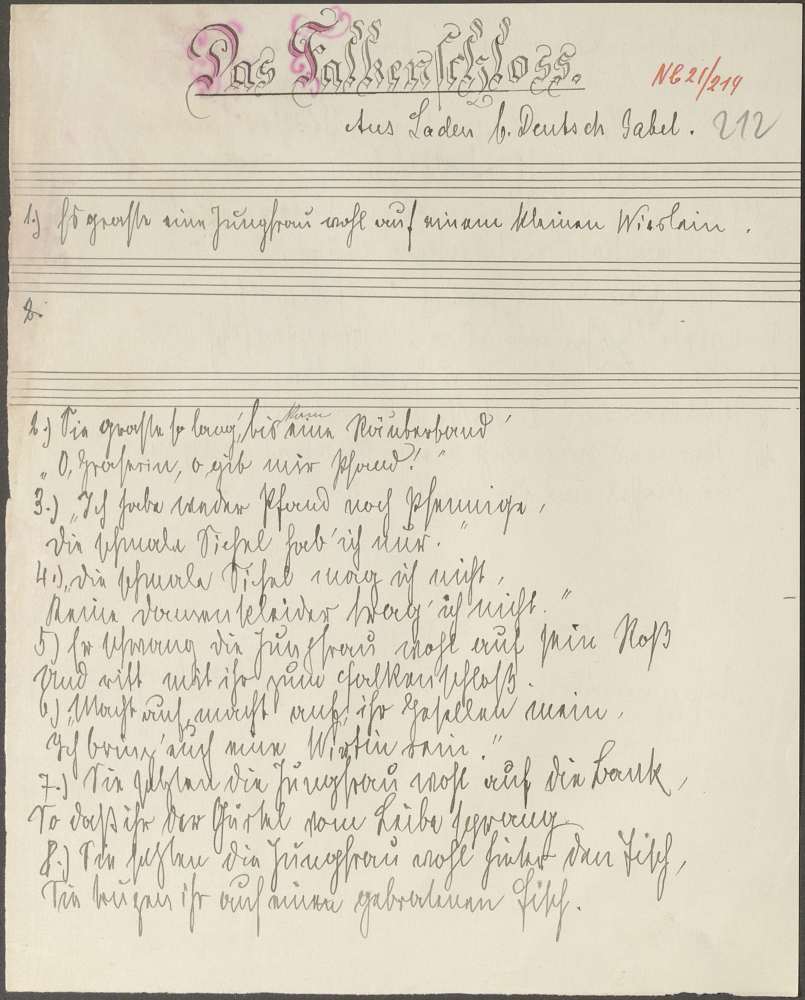 Das Falkenschloss.
NE 21/219
Aus Laden b. Deutsch Gabel. 212
1.) Es graste eine Jungfrau wohl auf einem kleinen Wieslein.
2.
2.) Sie graste so lang, bis kam eine Räuberband'
„O, Graserin, o gib mir Pfand!"
3.) „Ich habe weder Pfand noch Pfennige,
Die schmale Sichel hab' ich nur."
4.) „Die schmale Sichel mag ich nicht,
Keine Damenkleider trag' ich nicht."
5) Er schwang die Jungfrau wohl auf sein Roß
Und ritt mit ihr zum Falkenschloß.
6) „Macht auf, macht auf, ihr Gesellen mein,
Ich bring' euch eine Wirtin rein."
7.) Sie setzten die Jungfrau wohl auf die Bank,
So daß ihr der Gürtel vom Leibe sprang.
8.) Sie setzten die Jungfrau wohl hinter den Tisch,
Sie trugen ihr auf einen gebratenen Fisch.